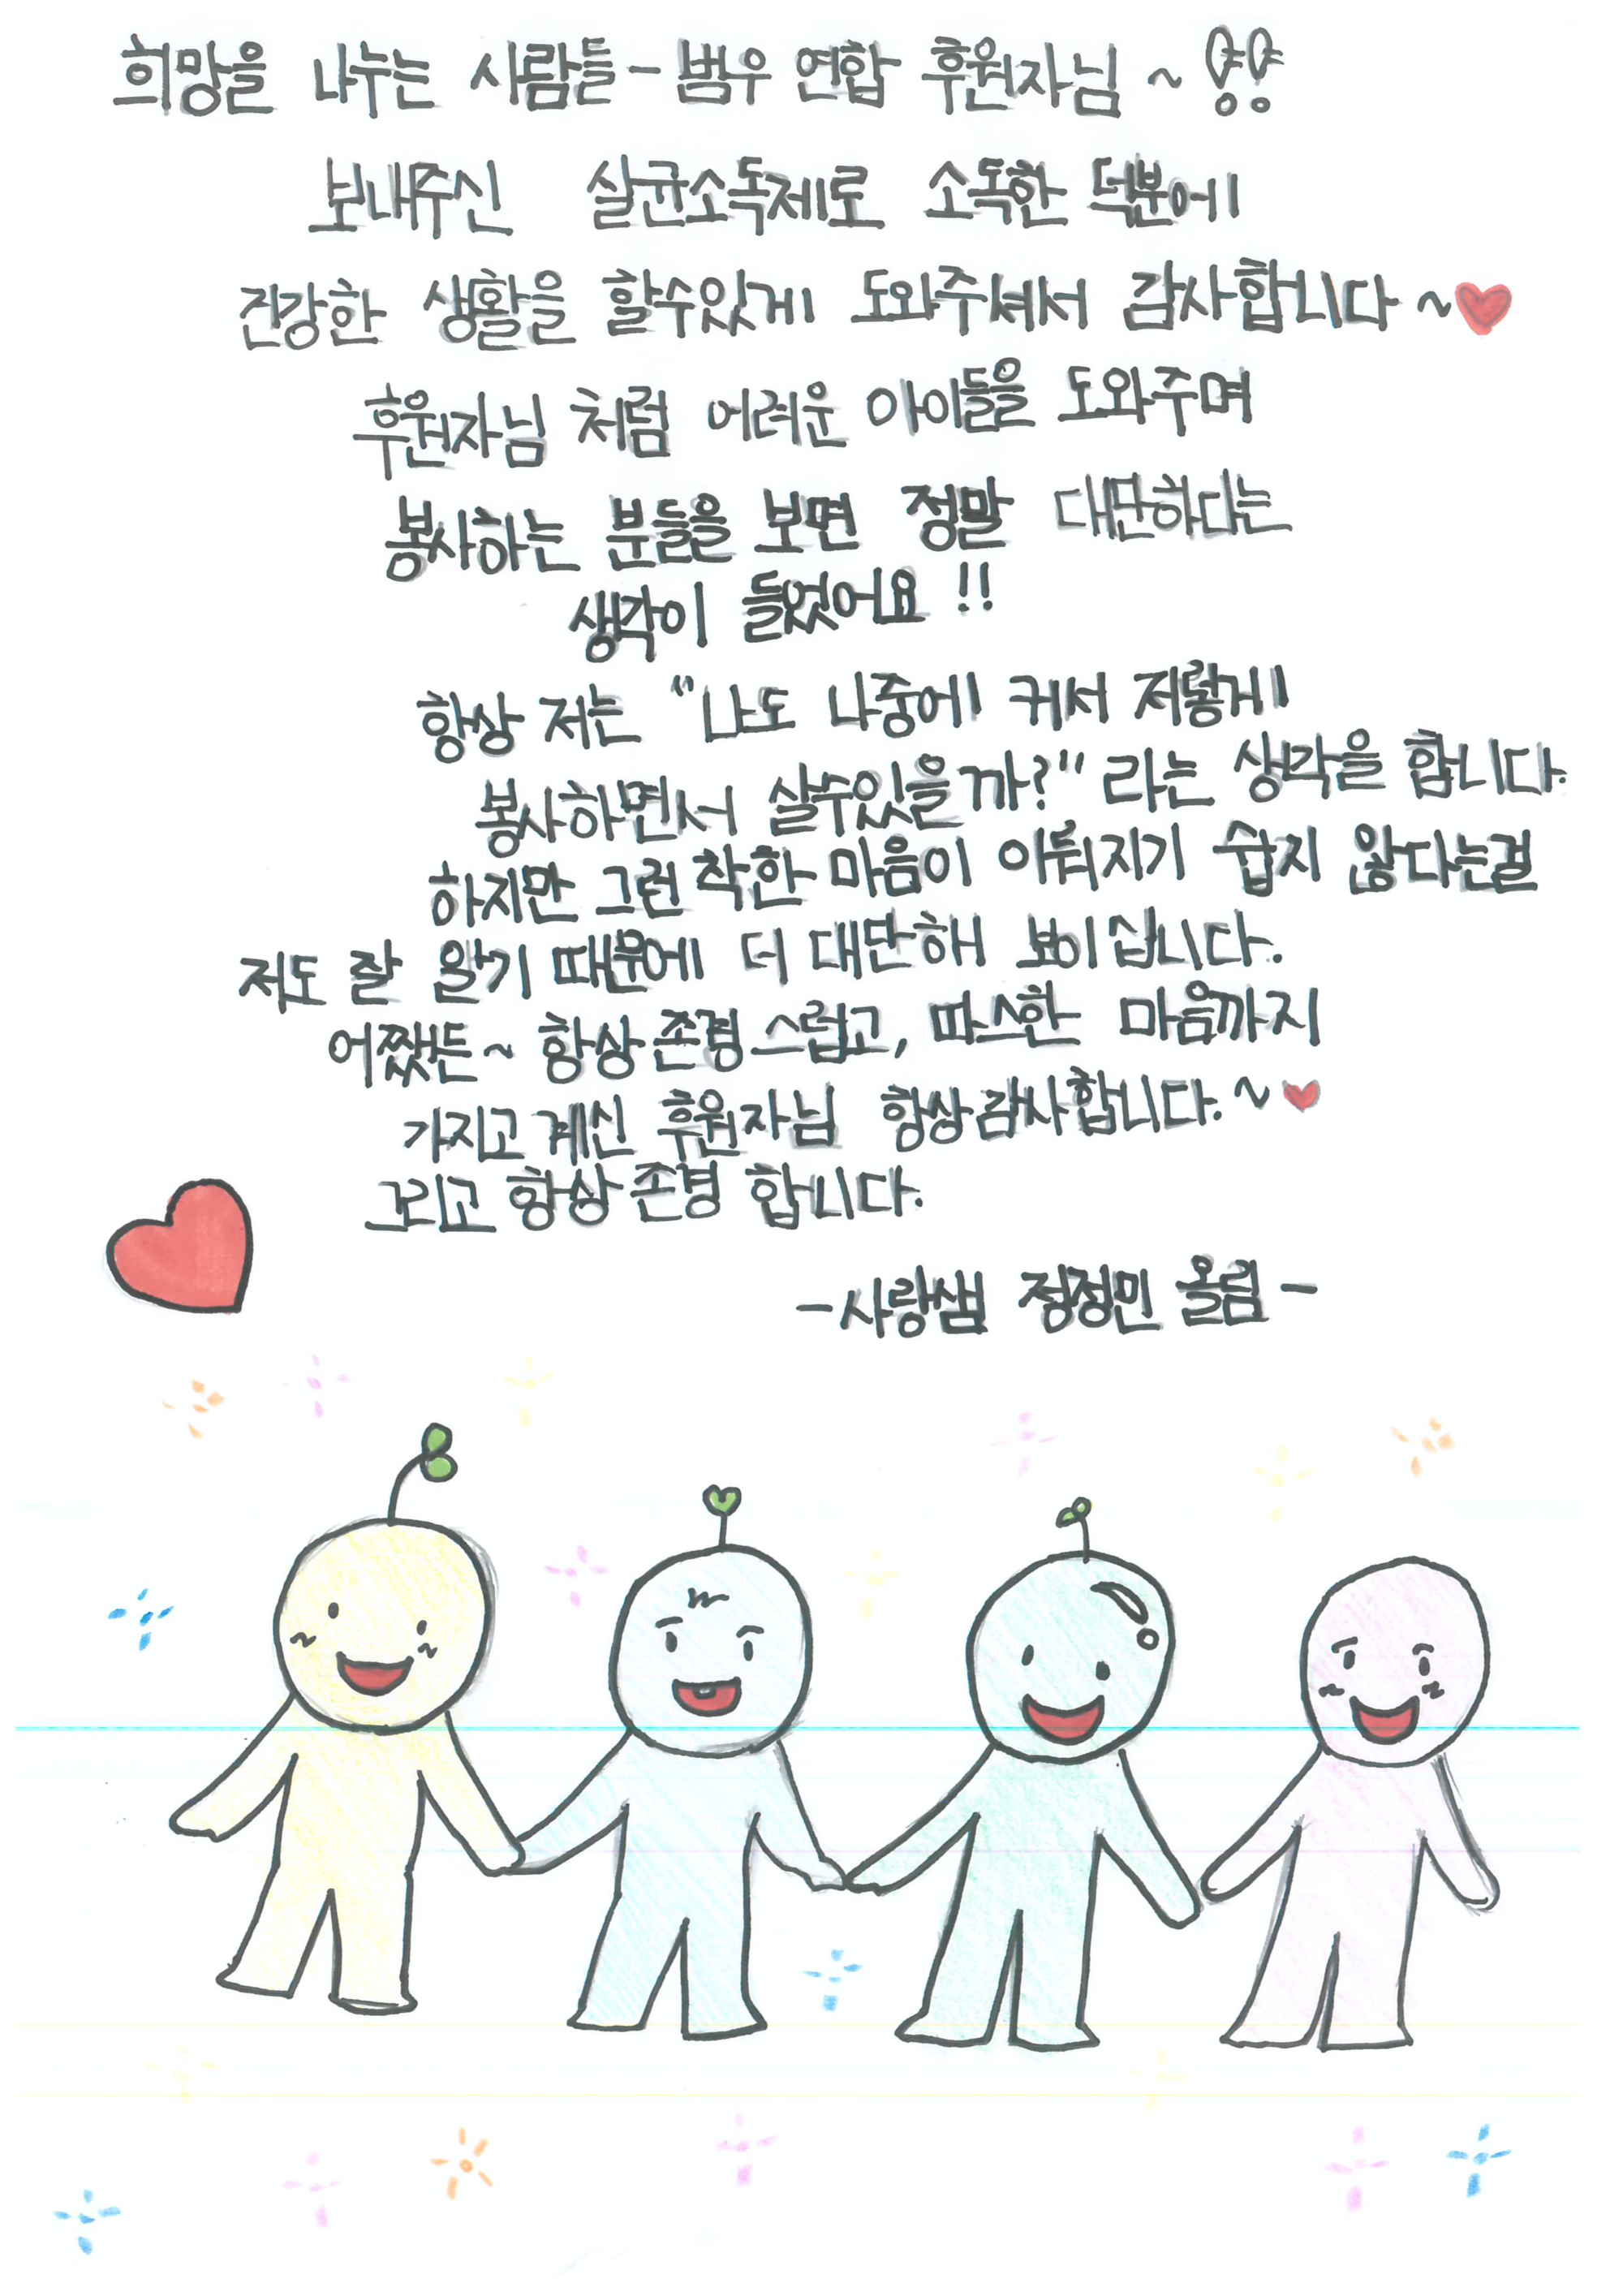 희망을 나누는 사람들 - 범우 연합 후원자님 ~ !!
보내주신 살균소독제로 소독한 덕분에
건강한 생활을 할수있게 도와주셔서 감사합니다 ~♥
후원자님 처럼 어려운 아이들을 도와주며
봉사하는 분들을 보면 정말 대단하다는
생각이 들었어요 !!
항상 저는 "나도 나중에 커서 저렇게
봉사하면서 살수있을까?" 라는 생각을 합니다.
하지만 그런 착한 마음이 이뤄지기 쉽지 않다는걸
저도 잘 알기 때문에 더 대단해 보이십니다.
어쨌든~ 항상 존경스럽고, 따스한 마음까지
가지고 계신 후원자님 항상 감사합니다.~♥
그리고 항상 존경 합니다.
-사랑샘 정정민 올림-